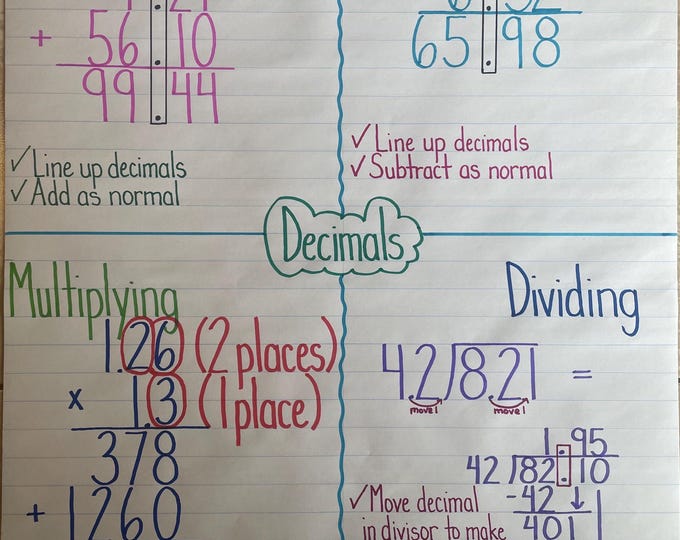 + 56.10
99.44
✓ Line up decimals
✓ Add as normal
65.98
✓ Line up decimals
✓ Subtract as normal
Decimals
Multiplying
1.26 (2 places)
x 1.3 (1 place)
378
+ 1260
Dividing
4.2)8.21 =
move 1 move 1
1.95
42)82.10
-42 ↓
401
✓ Move decimal
in divisor to make